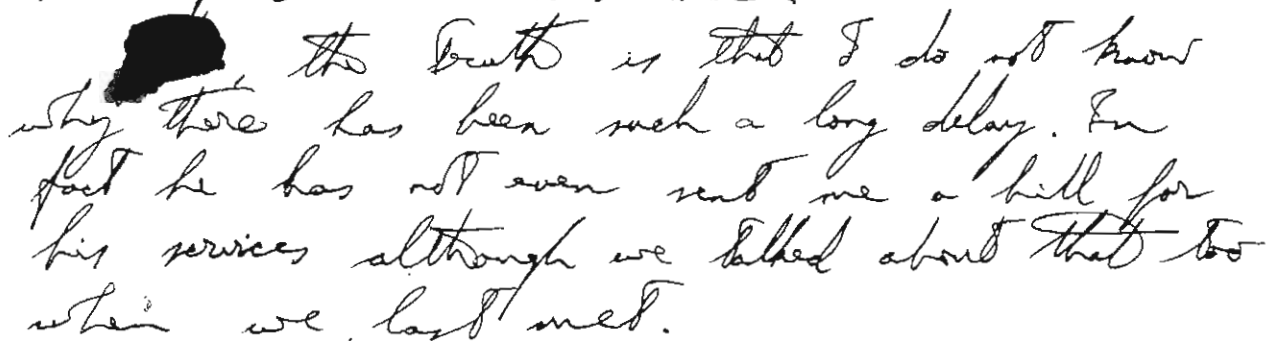 the truth is that I do not know
why there has been such a long delay. In
fact he has not even sent me a bill for
his services although we talked about that too
when we last met.